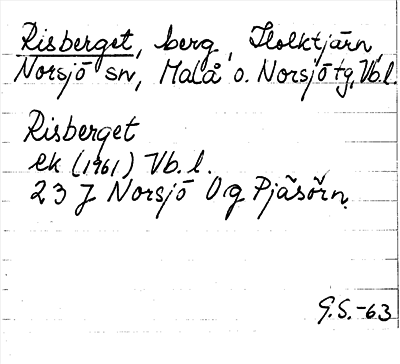 Risberget, berg, Holktjärn,
Norsjö sn, Malå o. Norsjö tg, Vb.l.
Risberget
ek (1961) Vb.l.
23 J Norsjö 0 g Pjäsörn.
G.S.-63